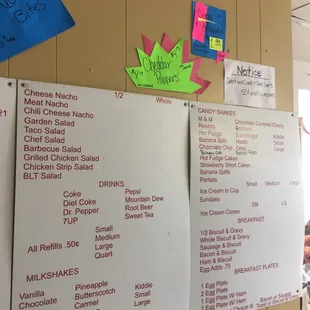 Bites
Cheddar
Poppers
Notice
Cheese Nacho 1/2 Whole
Meat Nacho
Chili Cheese Nacho
Garden Salad
Taco Salad
Chef Salad
Barbecue Salad
Grilled Chicken Salad
Chicken Strip Salad
BLT Salad
DRINKS
Coke Pepsi
Diet Coke Mountain Dew
Dr. Pepper Root Beer
7UP Sweet Tea
Small
Medium
All Refills .50¢ Large
Quart
MILKSHAKES
Vanilla Pineapple Kiddie
Chocolate Butterscotch Small
Carmel Medium
CANDY SHAKES
M & M Chocolate Covered Cherry
Reeses
Hot Fudge
Banana Split Heath Kiddie
Chocolate Chip Oreo Small
Hot Fudge Cakes
Strawberry Short Cakes
Banana Splits
Parfaits
Small Medium Large
Ice Cream In Cup
Sundaes
SM LG
Ice Cream Cones
BREAKFAST
1/2 Biscuit & Gravy
Whole Biscuit & Gravy
Sausage & Biscuit
Bacon & Biscuit
Ham & Biscuit
Egg Adds .75
BREAKFAST PLATES
1 Egg Plate
2 Egg Plate
1 Egg Plate W/ Ham
2 Egg Plate W/ Ham
Bacon or Sausage
Toast or Biscuit